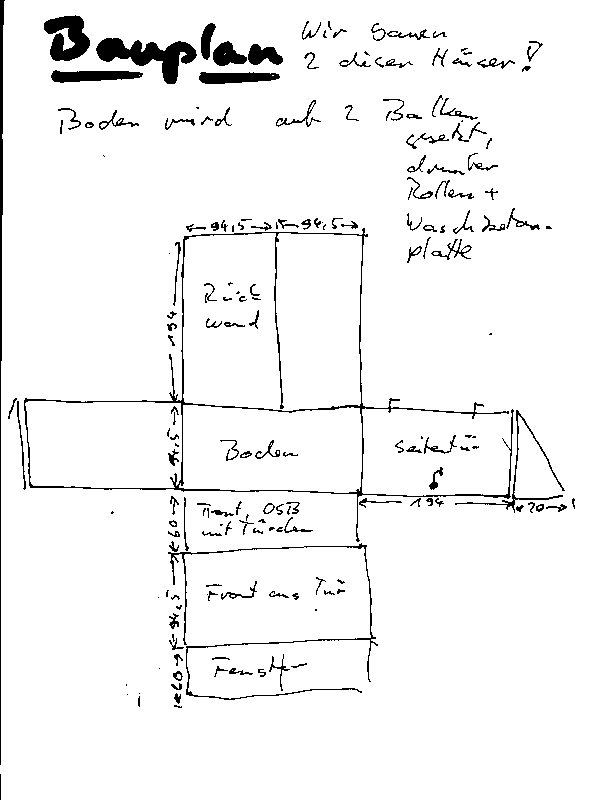 Bauplan
Wir bauen
2 dieser Häuser!
Boden wird auf 2 Balken
gesetzt,
drunter
Rollen +
Waschbeton-
platte
94,5 94,5
Rück
wand
194
Boden
94,5
Seitentür
194
20
Front, OSB
mit Türchen
60
Front aus Tür
94,5
Fenster
60